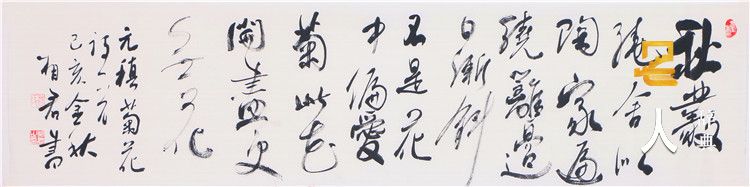 秋叢
繞舍似
陶家遍
繞籬邊
日漸斜
不是花
中偏愛
菊此花
開盡更
無花
元稹菊花
詩一首
己亥金秋
君書
人